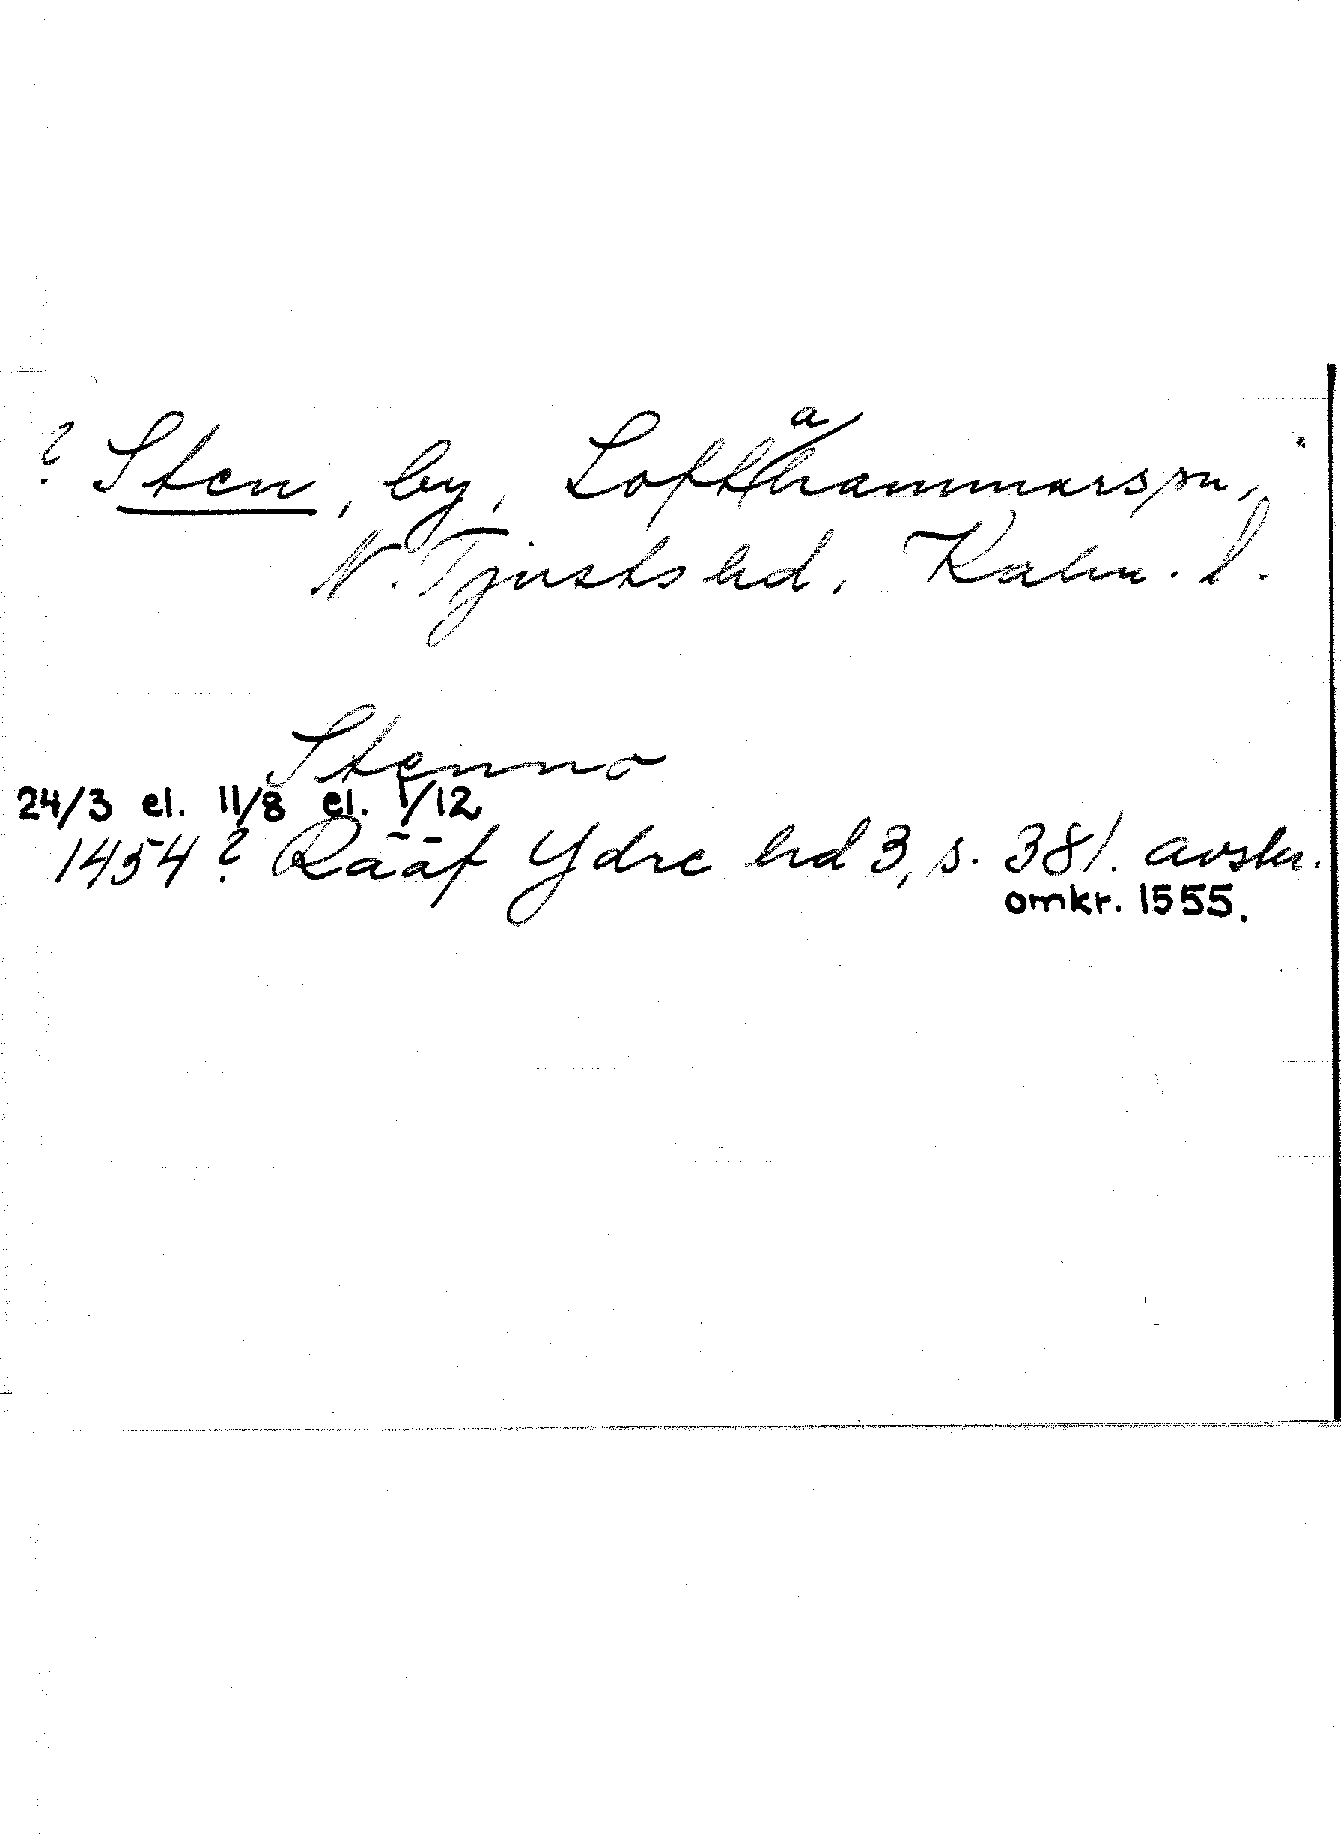 ? Sten, by, Loftahammars sn,
N. Tjusts hd. Kalm. l.
Stenno
24/3 el. 11/8 el. 1/12
1454? Rääf Ydre hd 3, s. 381. avskr.
omkr. 1555.